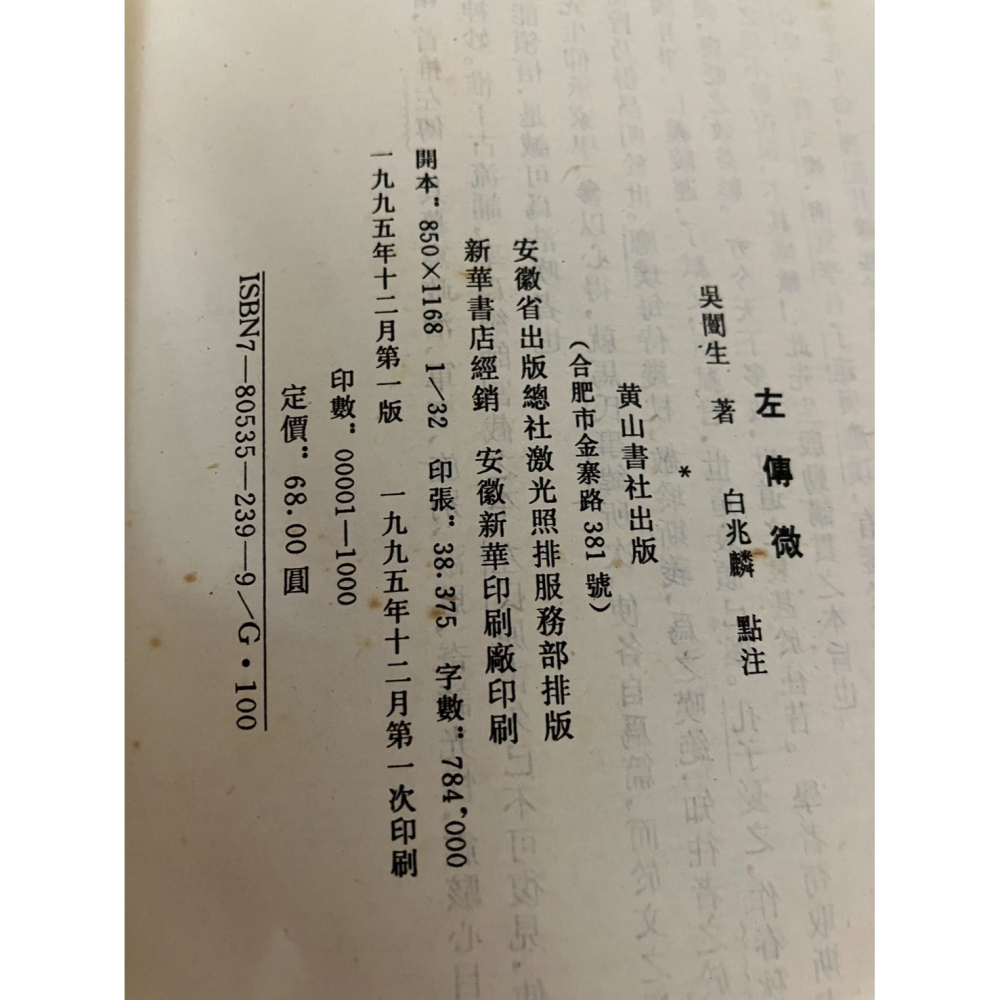 左傳微
吳闓生 著 白兆麟 點注
*
黄山書社出版
(合肥市金寨路381號)
安徽省出版總社激光照排服務部排版
新華書店經銷 安徽新華印刷廠印刷
開本：850×1168 1/32 印張：38.375 字數：784,000
一九九五年十二月第一版 一九九五年十二月第一次印刷
印數：00001—1000
ISBN7—80535—239—9/G·100
定價：68.00圓